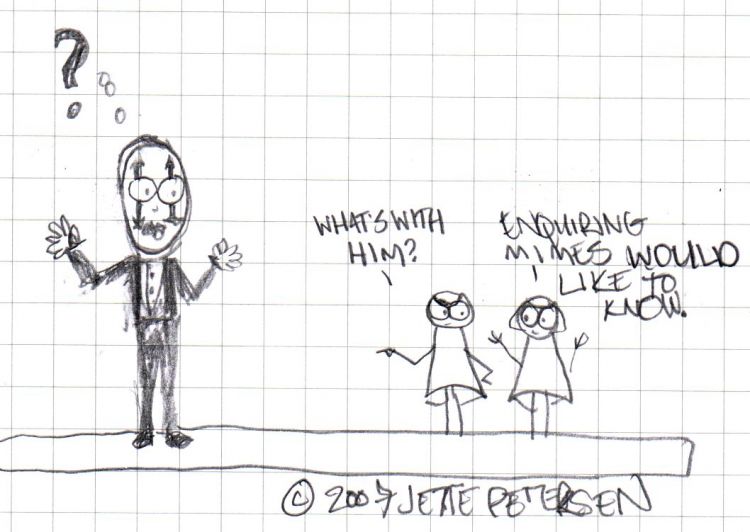 ?
WHAT'S WITH
HIM?
ENQUIRING
MIMES WOULD
LIKE TO
KNOW.
© 2007 JETTE PETERSEN